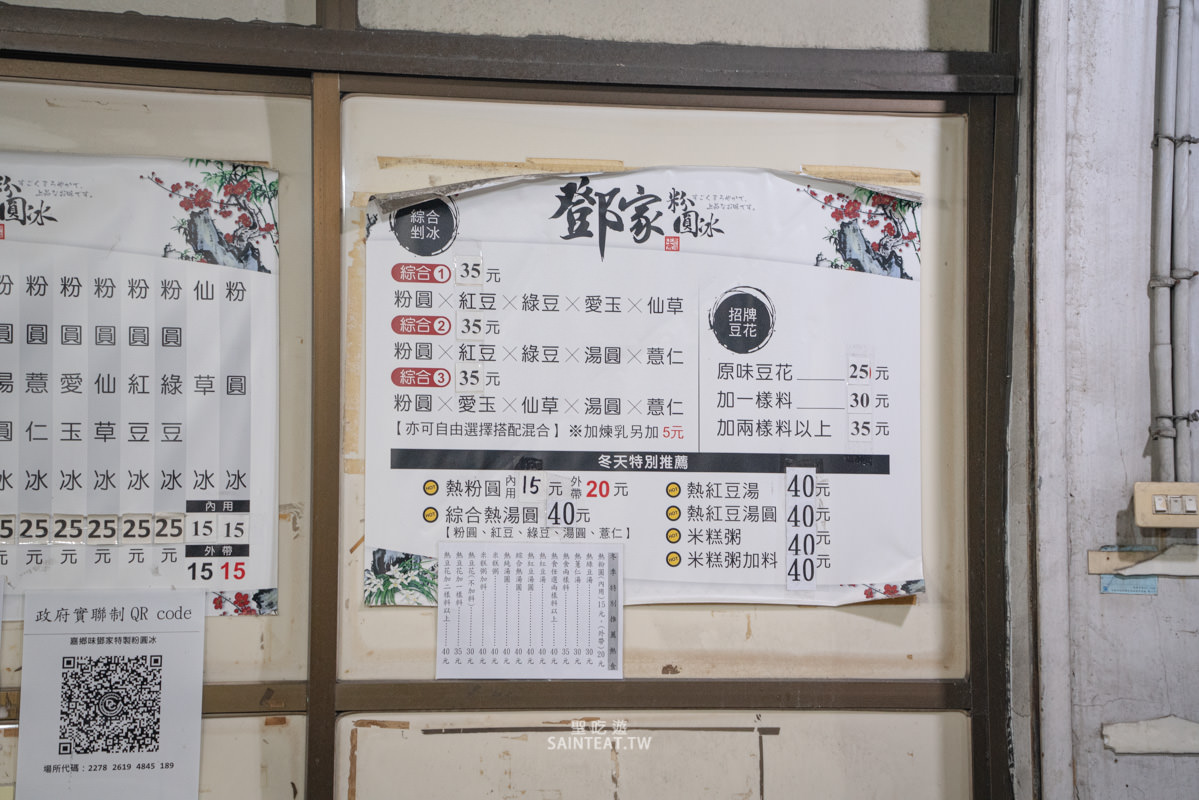 粉圓冰
すごくまろやかで、
上品なお味です。
粉 粉 粉 粉 粉 粉 仙 粉
圓 圓 圓 圓 圓 圓
湯 薏 愛 仙 紅 綠 草 圓
圓 仁 玉 草 豆 豆
冰 冰 冰 冰 冰 冰 冰 冰
內用
25 25 25 25 25 15 15
元 元 元 元 元 元
外帶
15 15
元 元
政府實聯制QR code
嘉鄉味鄧家特製粉圓冰
場所代碼：2278 2619 4845 189
鄧家粉圓冰
すごくまろやかで、
上品なお味です。
綜合
剉冰
綜合1 35元
粉圓×紅豆×綠豆×愛玉×仙草
綜合2 35元
粉圓×紅豆×綠豆×湯圓×薏仁
綜合3 35元
粉圓×愛玉×仙草×湯圓×薏仁
【亦可自由選擇搭配混合】※加煉乳另加5元
招牌
豆花
原味豆花____25元
加一樣料____30元
加兩樣料以上 35元
冬天特別推薦
HOT 熱粉圓 內用15元 外帶20元
HOT 綜合熱湯圓 40元
【粉圓、紅豆、綠豆、湯圓、薏仁】
HOT 熱紅豆湯 40元
HOT 熱紅豆湯圓 40元
HOT 米糕粥 40元
HOT 米糕粥加料 40元
冬季特別推薦熱食
熱粉圓(內用)15元，(外帶)20元
熱綠豆湯……30元
熱薏仁湯……30元
熱食兩樣料……35元
熱食任選兩樣料以上……40元
熱紅豆湯……40元
熱紅豆湯圓……40元
綜合熱湯圓……40元
熱純湯圓……40元
米糕粥……40元
米糕粥加料……40元
熱豆花(不加料)……30元
熱豆花加一樣料……35元
熱豆花加二樣料以上……40元
聖吃遊
SAINTEAT.TW